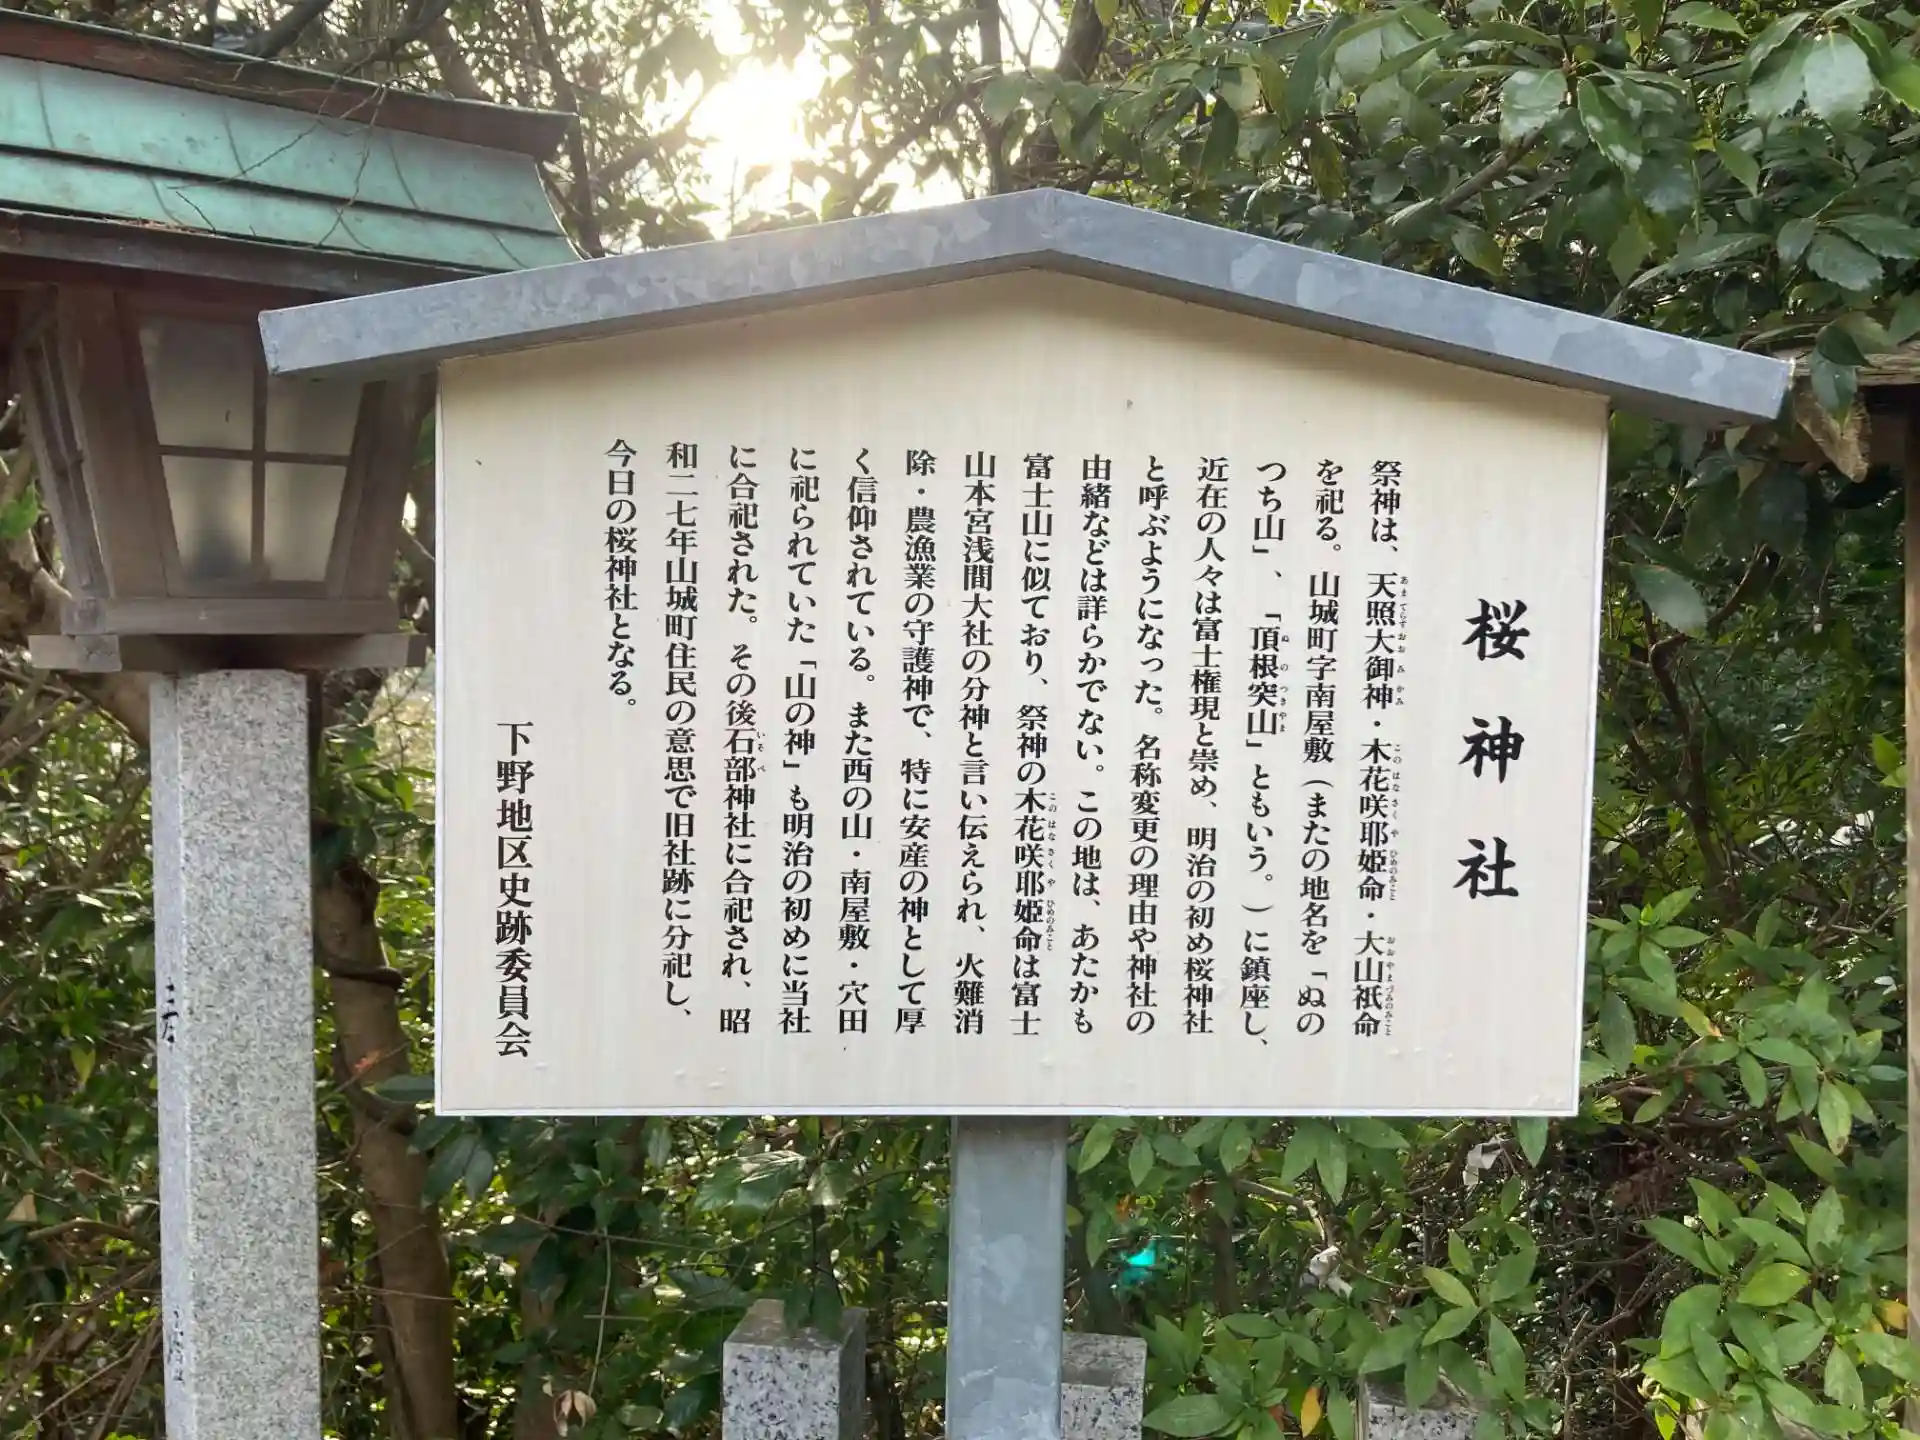 桜神社
祭神は、天照大御神・木花咲耶姫命・大山祇命
を祀る。山城町字南屋敷（またの地名を「ぬの
つち山」、「頂根突山」ともいう。）に鎮座し、
近在の人々は富士権現と崇め、明治の初め桜神社
と呼ぶようになった。名称変更の理由や神社の
由緒などは詳らかでない。この地は、あたかも
富士山に似ており、祭神の木花咲耶姫命は富士
山本宮浅間大社の分神と言い伝えられ、火難消
除・農漁業の守護神で、特に安産の神として厚
く信仰されている。また西の山・南屋敷・穴田
に祀られていた「山の神」も明治の初めに当社
に合祀された。その後石部神社に合祀され、昭
和二七年山城町住民の意思で旧社跡に分祀し、
今日の桜神社となる。
下野地区史跡委員会